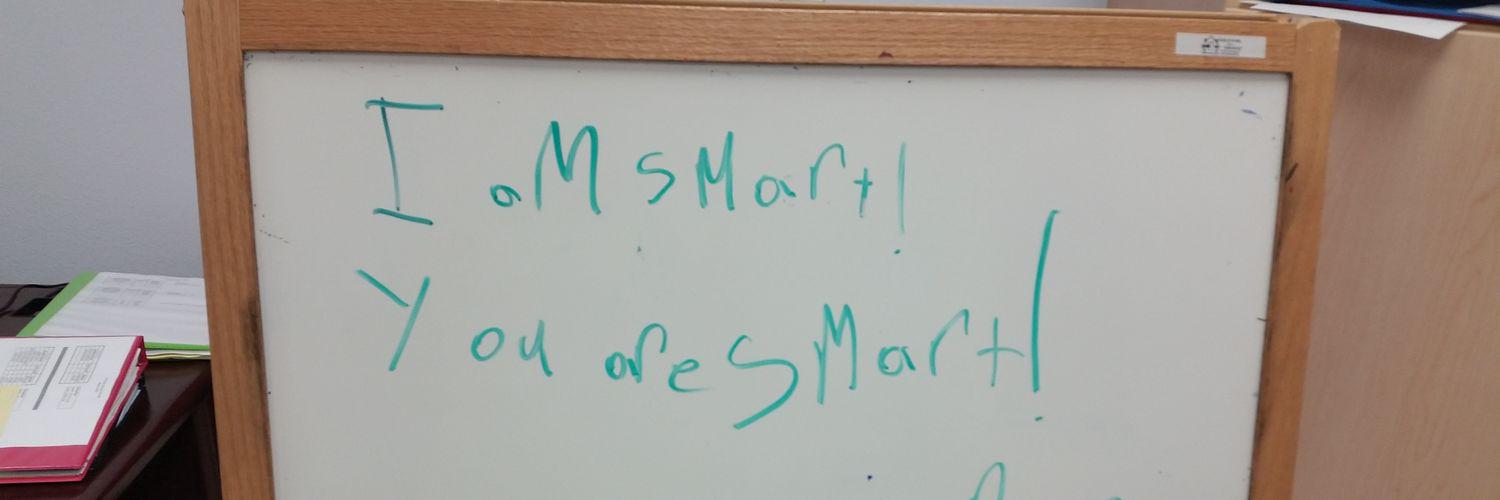 I aM sMart!
You are sMart!